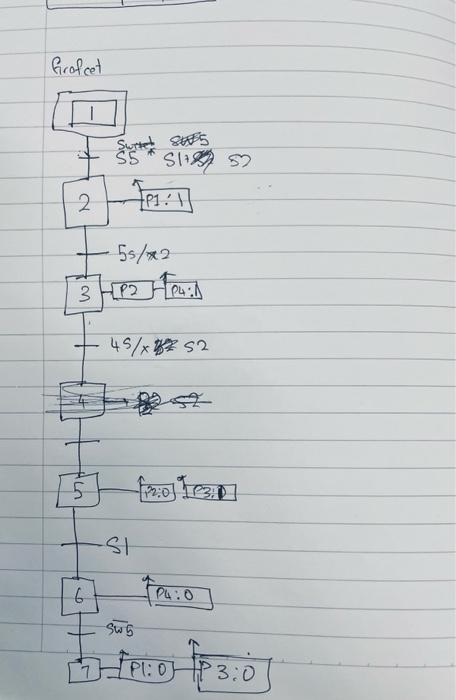 Grafcet
1
S5 * S1+ S2
2 P1:1
5s/x2
3 P2 P4:1
4s/x S2
4 S2
5 P2:0 P3:0
S1
6 P4:0
SW5
7 P1:0 P3:0